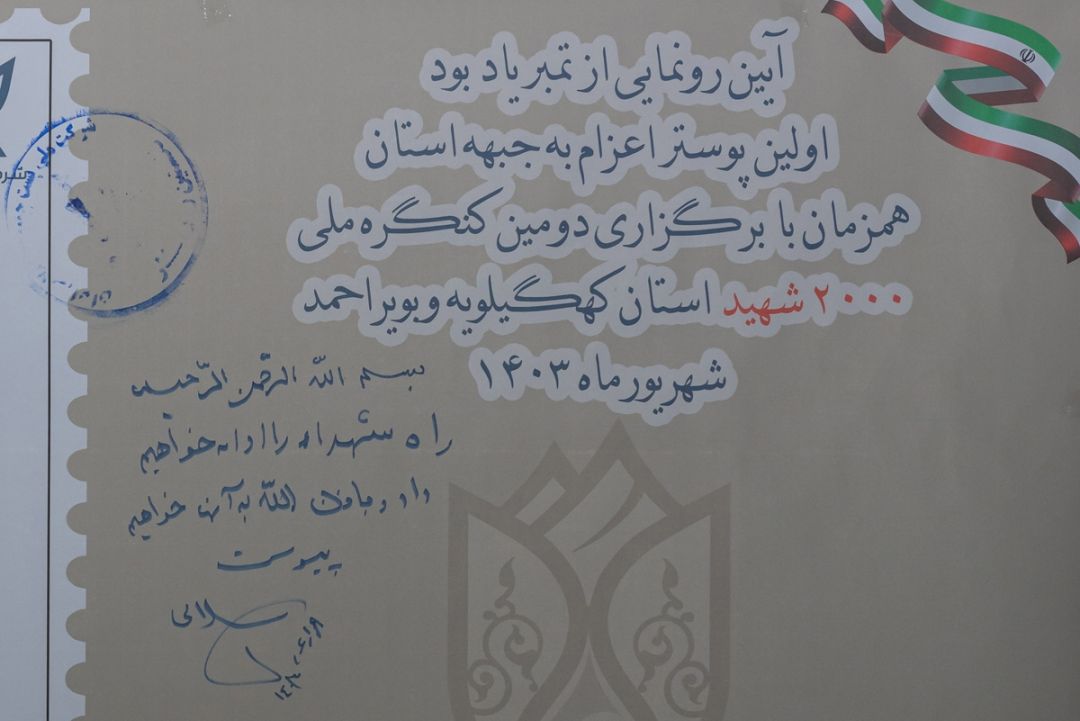 آیین رونمایی از تمبر یادبود
اولین پوستر اعزام به جبهه استان
همزمان با برگزاری دومین کنگره ملی
۲۰۰۰ شهید استان کهگیلویه و بویراحمد
شهریور ماه ۱۴۰۳
بسم الله الرحمن الرحیم
راه شهداء را ادامه خواهیم
داد و باذن الله به آنها خواهیم
پیوست